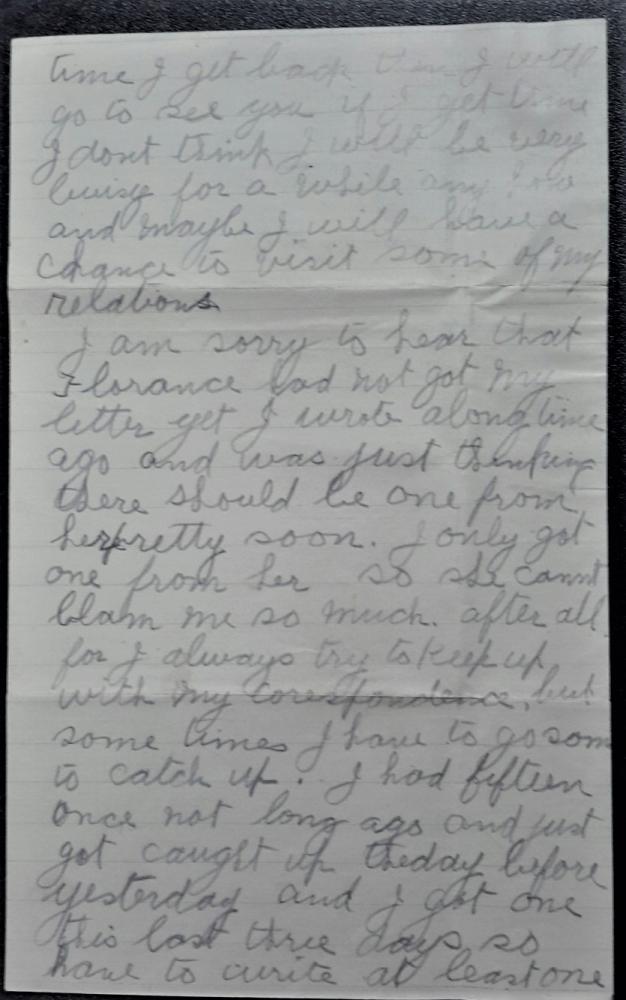 time I get back then I will
go to see you if I get time
I dont think I will be very
buisy for a while any how
and maybe I will have a
chance to visit some of my
relations
I am sorry to hear that
Florance had not got my
letter yet I wrote along time
ago and was just thinking
there should be one from
her pretty soon. I only got
one from her so she cannt
blam me so much. after all.
for I always try to keep up
with my corespondence, but
some times I have to go som
to catch up. I had fifteen
once not long ago and just
got caught up the day before
yesterday and I got one
this last three days so
have to write at least one